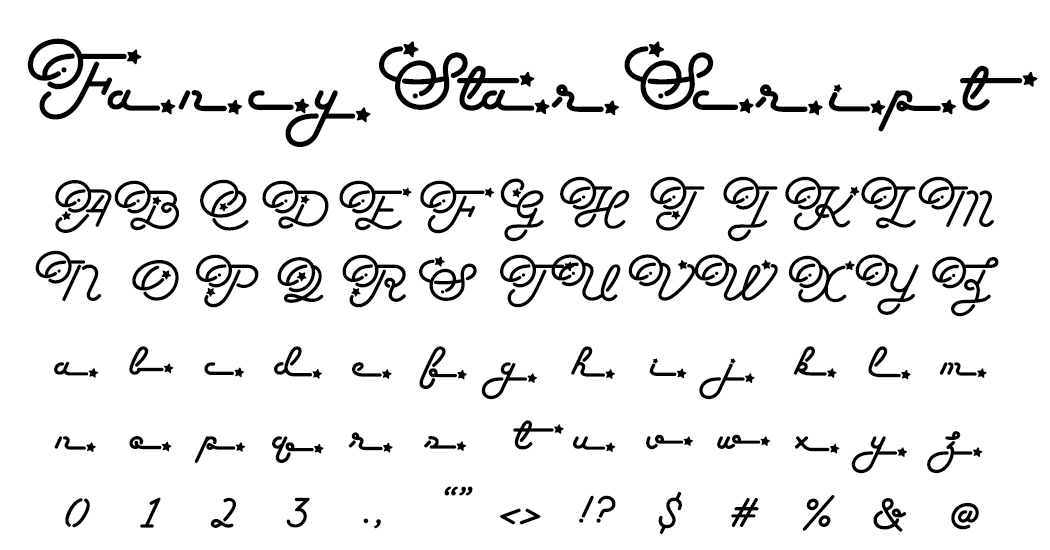 Fancy Star Script
A B C D E F G H I J K L M
N O P Q R S T U V W X Y Z
a b c d e f g h i j k l m
n o p q r s t u v w x y z
0 1 2 3 . , “” < > ! ? $ # % & @